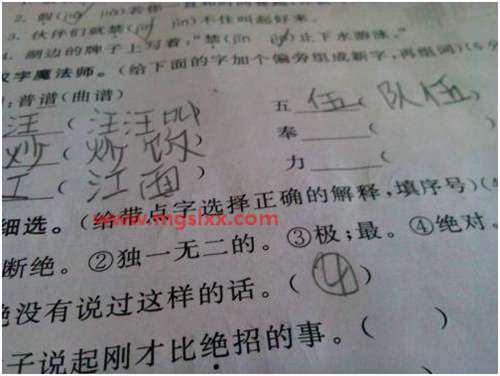 2. 假(jiǎ jià)若
3. 伙伴们就禁(jīn jìn)不住叫起好来。
4. 湖边的牌子上写着，“禁(jīn jìn)止下水游泳。”
汉字魔法师。(给下面的字加个偏旁组成新字，再组词)(6分
:普谱(曲谱)
汪(汪汪叫 五 伍(队伍)
炒(炒饭 奉 (
工(江面) 力 (
细选。(给带点字选择正确的解释，填序号)(4
断绝。②独一无二的。③极；最。④绝对。
绝没有说过这样的话。(④)
子说起刚才比绝招的事。( )
www.mgslxx.com